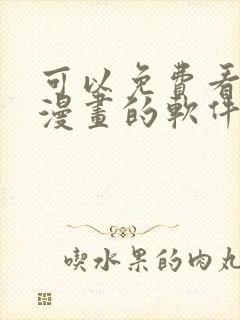 可以免費看
漫畫的軟件
喫水果的肉丸